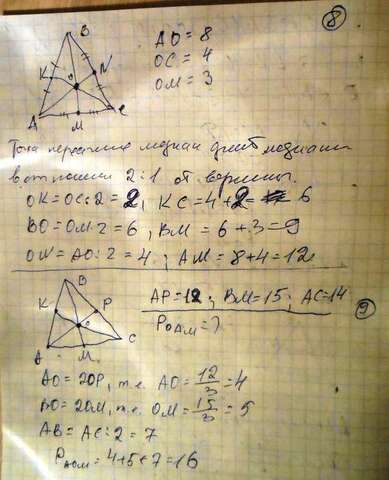 8
B
AO = 8
OC = 4
OM = 3
K
N
O
A
M
C
Точка пересечение медиан делит медиани
в отношении 2:1 от вершины.
OK = OC:2 = 2, KC = 4+2 = 6
BO = OM·2 = 6, BM = 6+3 = 9
ON = AO:2 = 4; AM = 8+4 = 12
B
K
P
O
A
M
C
AP = 12; BM = 15; AC = 14
9
P_OAM = ?
AO = 2OP, т.е. AO = 12/3 = 4
BO = 2OM, т.е. OM = 15/3 = 5
AB = AC:2 = 7
P_AOM = 4+5+7 = 16